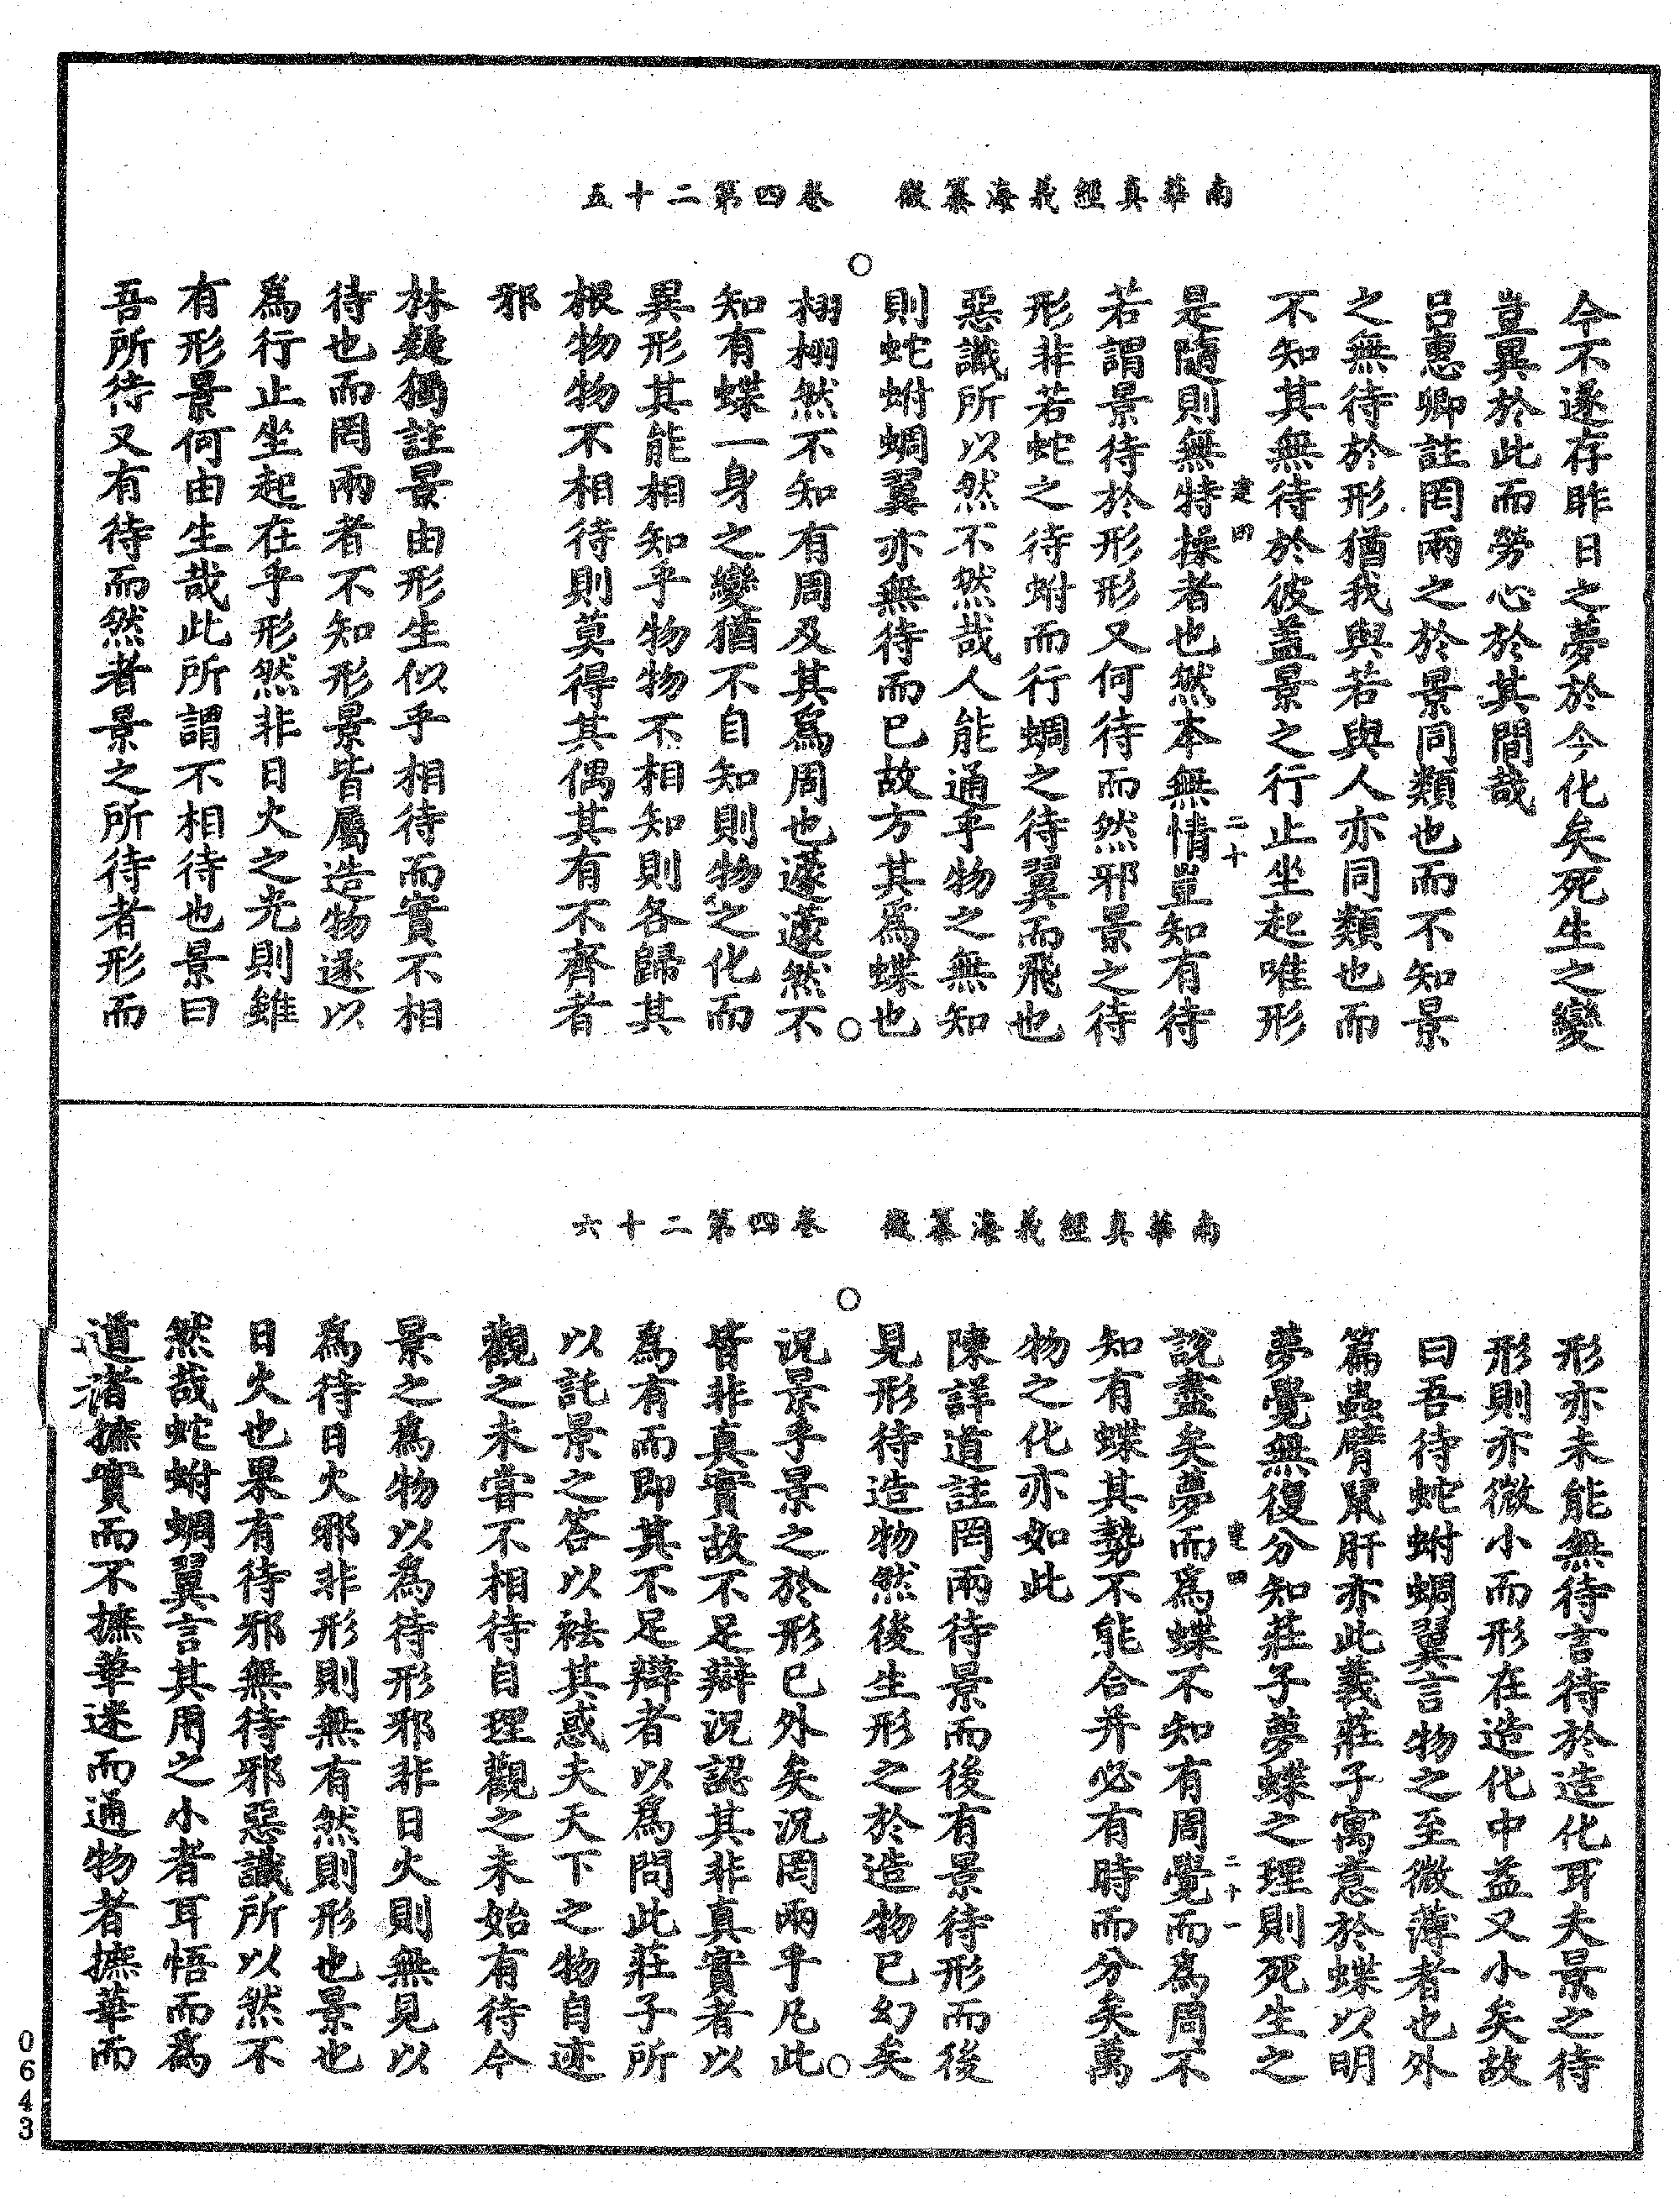 南華真經義海纂微　卷四第二十五
今不遂存昨日之夢於今化矣死生之變
豈異於此而勞心於其間哉
呂惠卿註罔兩之於景同類也而不知景
之無待於形猶我與若與人亦同類也而
不知其無待於彼蓋景之行止坐起唯形
是隨則無特操者也然本無情豈知有待
若謂景待於形形又何待而然邪景之待
形非若蛇之待蚹而行蜩之待翼而飛也
惡識所以然不然哉人能通乎物之無知
則蛇蚹蜩翼亦無待而已故方其為蝶也
栩栩然不知有周及其為周也蘧蘧然不
知有蝶一身之變猶不自知則物之化而
異形其能相知乎物物不相知則各歸其
根物物不相待則莫得其偶其有不齊者
邪
林疑獨註景由形生似乎相待而實不相
待也而罔兩者不知形景皆屬造物遂以
為行止坐起在乎形然非日火之光則雖
有形景何由生哉此所謂不相待也景曰
吾所待又有待而然者景之所待者形而
南華真經義海纂微　卷四第二十六
形亦未能無待言待於造化耳夫景之待
形則亦微小而形在造化中益又小矣故
曰吾待蛇蚹蜩翼言物之至微薄者也外
篇蟲臂鼠肝亦此義莊子寓意於蝶以明
夢覺無復分知莊子夢蝶之理則死生之
說盡矣夢而為蝶不知有周覺而為周不
知有蝶其勢不能合并必有時而分矣萬
物之化亦如此
陳詳道註罔兩待景而後有景待形而後
見形待造物然後生形之於造物已幻矣
況景乎景之於形已外矣況罔兩乎凡此
皆非真實故不足辯況認其非真實者以
為有而即其不足辯者以為問此莊子所
以託景之答以袪其惑夫天下之物自迹
觀之未嘗不相待自理觀之未始有待今
景之為物以為待形邪非日火則無見以
為待日火邪非形則無有然則形也景也
日火也果有待邪無待邪惡識所以然不
然哉蛇蚹蜩翼言其用之小者耳悟而為
道者摭實而不摭華迷而通物者摭華而
建四
二十
建四
二十一
0643